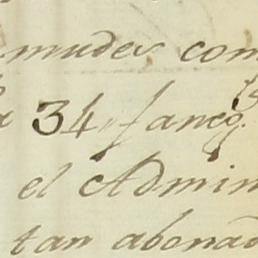 mudes com
34, fancg.s
el Admin
tan abona